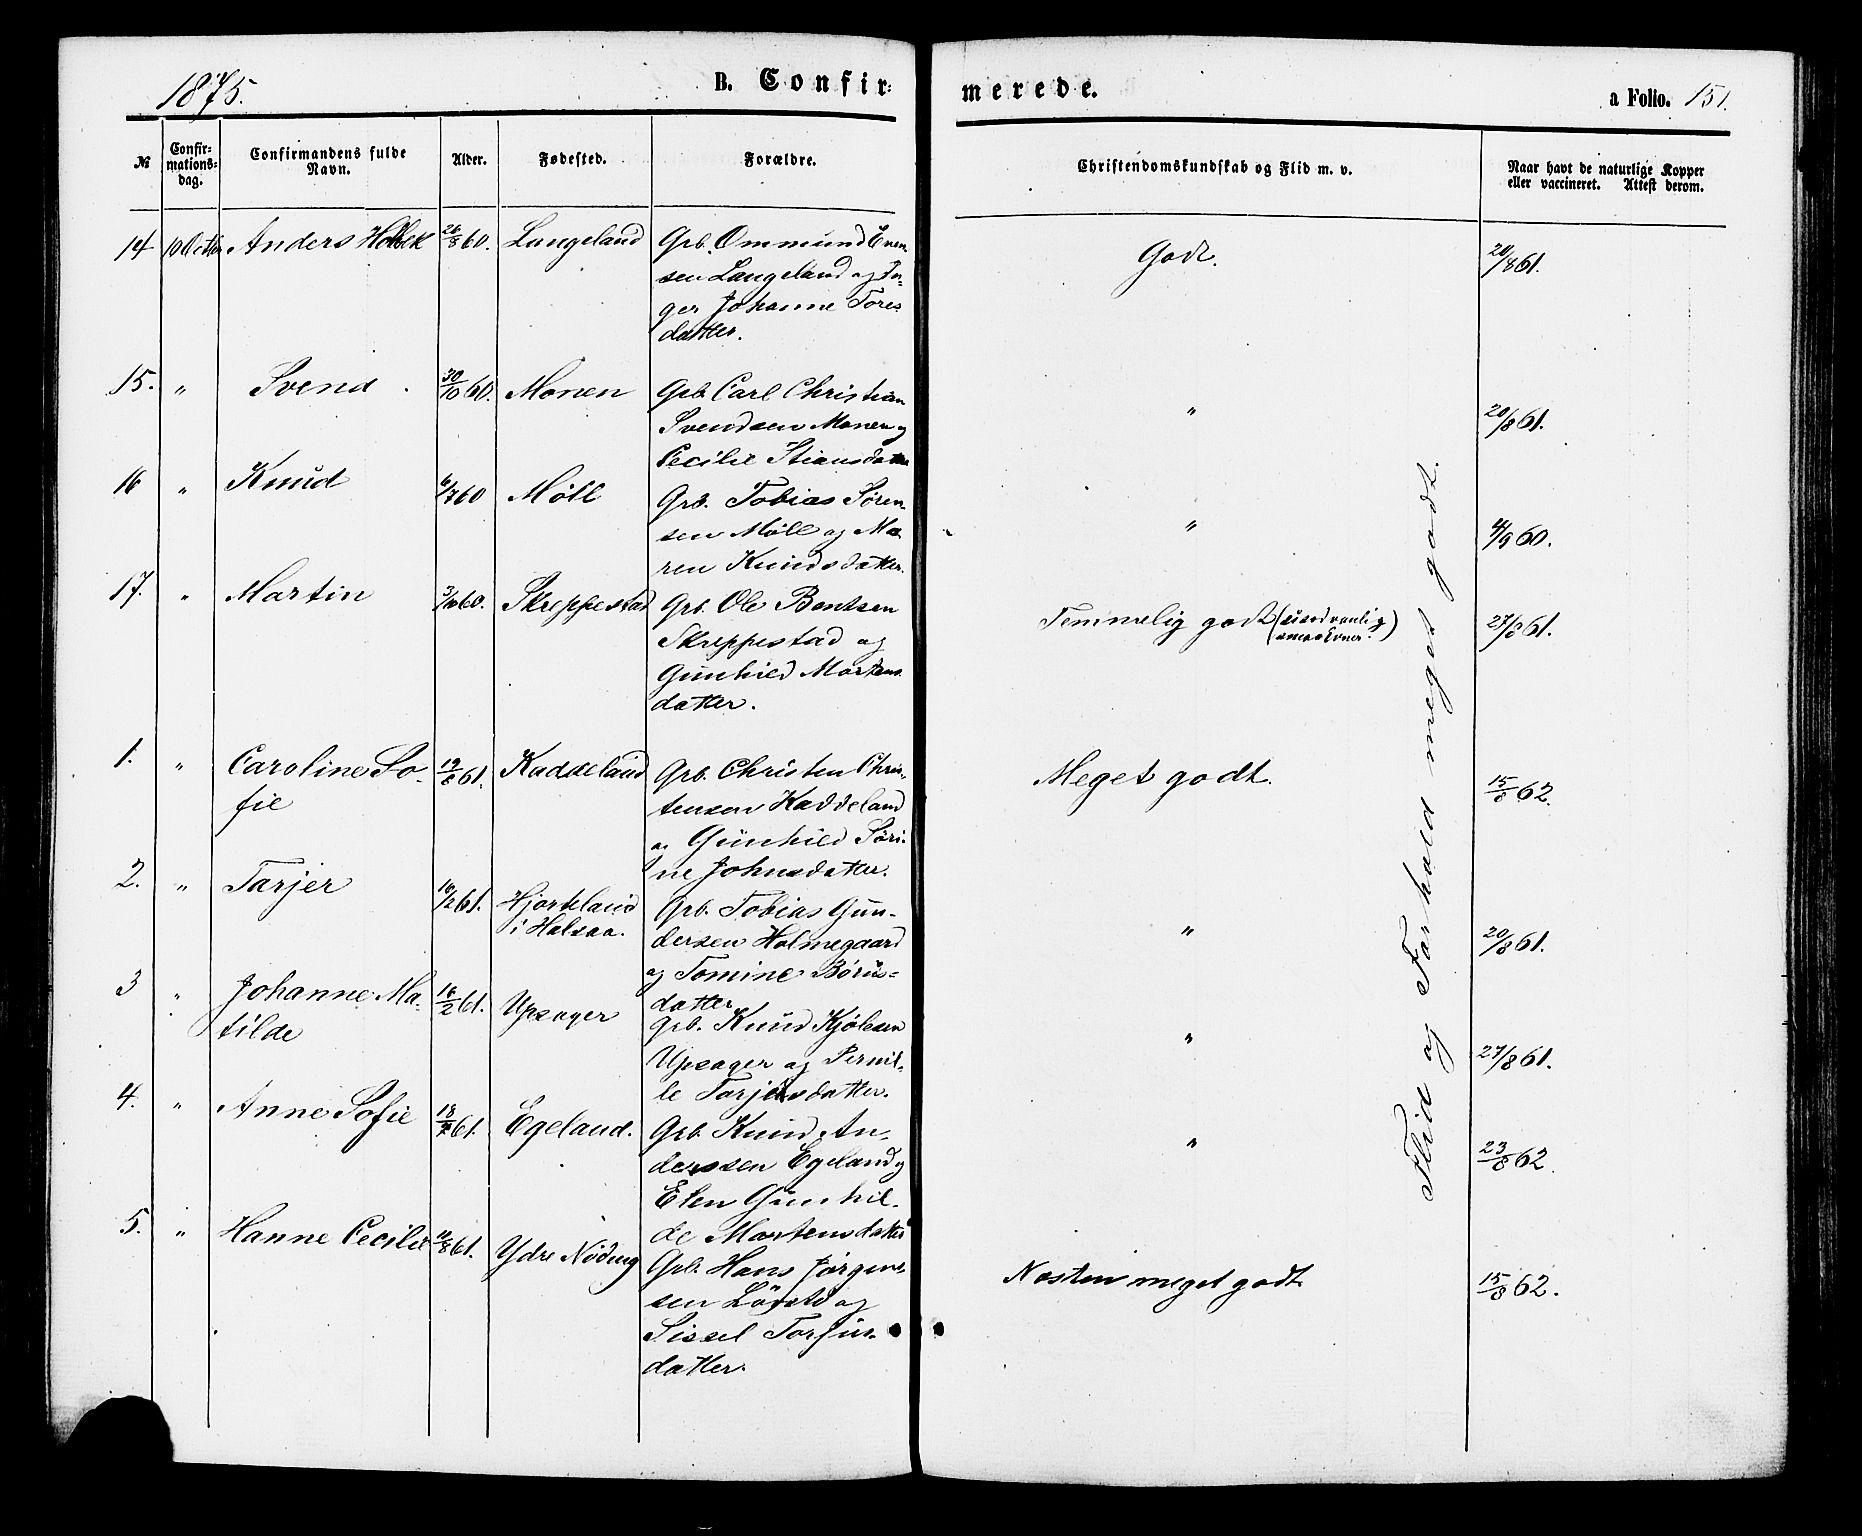 1875.
B. Confir-
merede.
a Folio. 151.
№
Confir-
mations-
dag.
Confirmandens fulde
Navn.
Alder.
Fødested.
Forældre.
Christendomskundskab og Flid m. v.
Naar havt de naturlige Kopper
eller vaccineret. Attest derom.
14 10 Octbr Anders 26/8 60. Langeland Grb. Ommund Even
sen Langeland og In-
ger Johanne Tores
datter.
Godt. 20/8 61.
15. " Svend 30/10 60. Monen Grb. Carl Christian
Svendsen Monen og
Cecilie Stiansdatter
" 20/8 61.
16 " Knud 6/7 60 Møll Grb. Tobias Søren-
sen Møll og Ma-
ren Knudsdatter.
" 4/9 60.
17. " Martin 3/10 60. Skreppestad Grb. Ole Bentsen
Skreppestad og
Gunhild Mortens
datter.
Temmelig godt (usædvanlig
smaa Evner.) 27/8 61.
1. " Caroline So-
fie
19/6 61. Kaddeland Grb. Christen Chris-
tensen Kaddeland
og Gunhild Søri-
ne Johnsdatter.
Meget godt. 15/8 62.
2. " Tarjer 16/2 61. Hjorteland
i Halsaa.
Grb. Tobias Gun-
dersen Holmegaard
og Tomine Børus-
datter
" 20/8 61.
3 " Johanne Ma-
tilde
16/2 61. Upsager Grb. Knud Kjølesen
Upsager og Pernil-
le Tarjersdatter.
" 27/8 61.
4. " Anne Sofie 18/2 61. Egeland. Grb. Knud An-
derssen Egeland og
Elen Gunhil-
de Mortensdatter
" 23/8 62.
5. " Hanne Cecilie 11/8 61. Ydre Nøding Grb. Hans Jørgen-
sen og
Sissel Torjus-
datter.
Næsten meget godt 15/8 62.
Flid og Forhold meget godt.